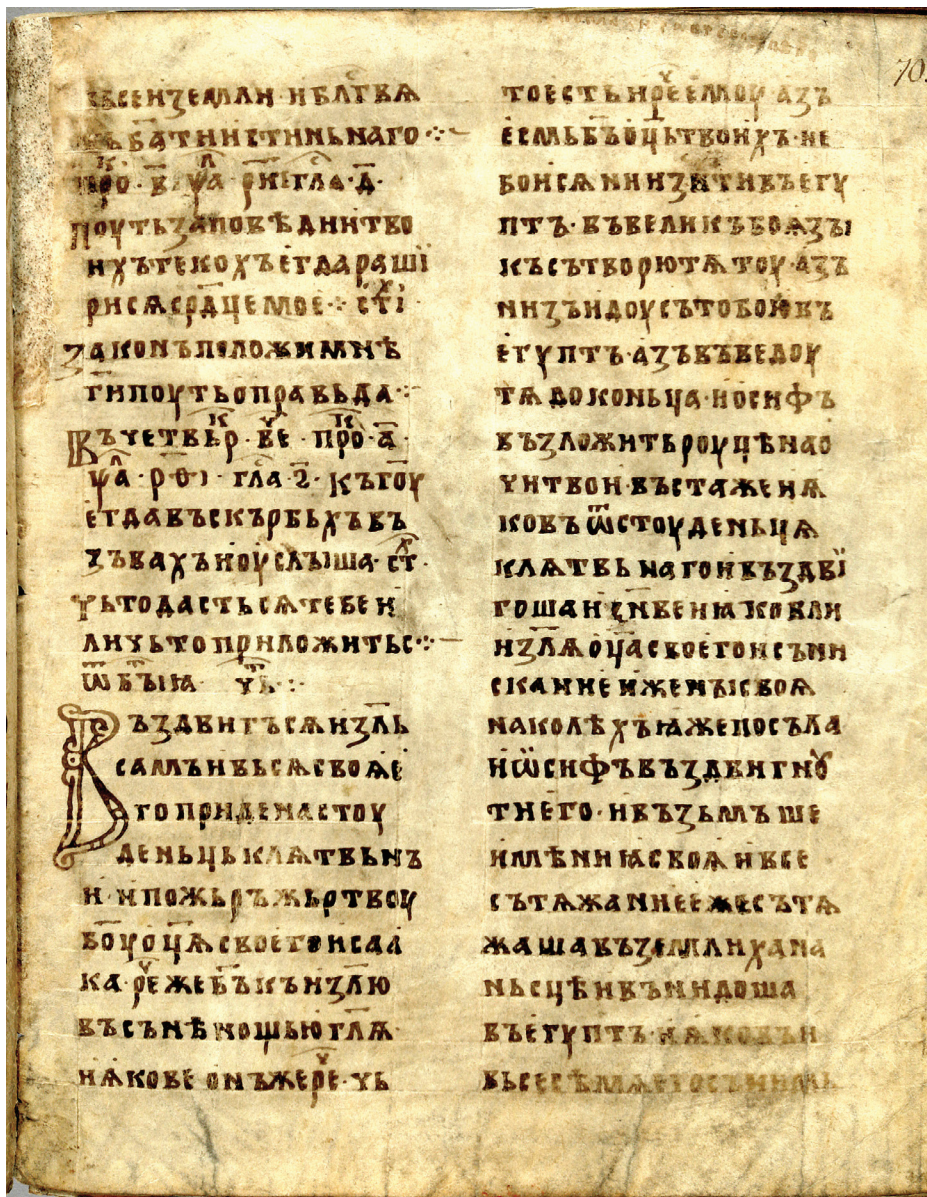 вьсеи земли · и блгⷭ҇вѧ
ть б҃а тинстиньнаго ⁘ —
прⷪ҇ⷦ · в҃ · ѱⷧ҇а · р҃ні · гл҃а · д҃ ·
поуть заповѣдии тво
ихъ текохъ егда раші
ри сѧ срⷣце мое ⁘ стⷯі ·
законъ положи мнѣ
ги҃ поуть оправьда ⁘
Въ четвьрⷦ · вⷱе · прⷪⷦ · а҃ ·
ѱⷧа · р҃ѳі · гл҃а · ꙅ҃ · къ гоу҃
егда въскърбьхъ въ
зъвахъ и оуслыша · стⷯ ·
чьто дасть сѧ тебе и
ли чьто приложитьс ⁘ —
ѿ бꙑтиꙗ чть ⁘
Въздвигъ сѧ изл҃ь
самъ и вьсѧ своѧ е
го приде на стоу
деньць клѧтвьнъ
и · и пожьръ жьртвоу
боу҃ оц҃ѧ своего исаа
ка · реⷱ же бъ҃ къ изл҃ю
въ сънѣ нощью гл҃ѧ ·
иѧкове онъ же реⷱ · чь
то есть и реⷱ емоу · азъ
есмь бъ҃ оц҃ь твоихъ · не
боисѧ ни изити въ егу
птъ · въ великъ бо ѧзꙑ
къ сътворю тѧ тоу · азъ
низъидоу съ тобою въ
егуптъ · азъ възведоу
тѧ до коньца · иосифъ
възложить роуцѣ на о
чи твои · въста же иѧ
ковъ ѿ стоуденьцѧ
клѧтвьнаго и въздві
гоша и сн҃ве иꙗковли
изл҃ѧ оц҃а своего и съни
скание и женꙑ своѧ
на колѣхъ ꙗже посъла
иѡсифъ въздвигнꙋ
ти его · и възьмъше
имѣниꙗ своѧ и все
сътѧжание еже сътѧ
жаша въ земли хана
ньсцѣи вънидоша
въ егуптъ · иѧковъ и
вьсе сѣмѧ его съ нимь